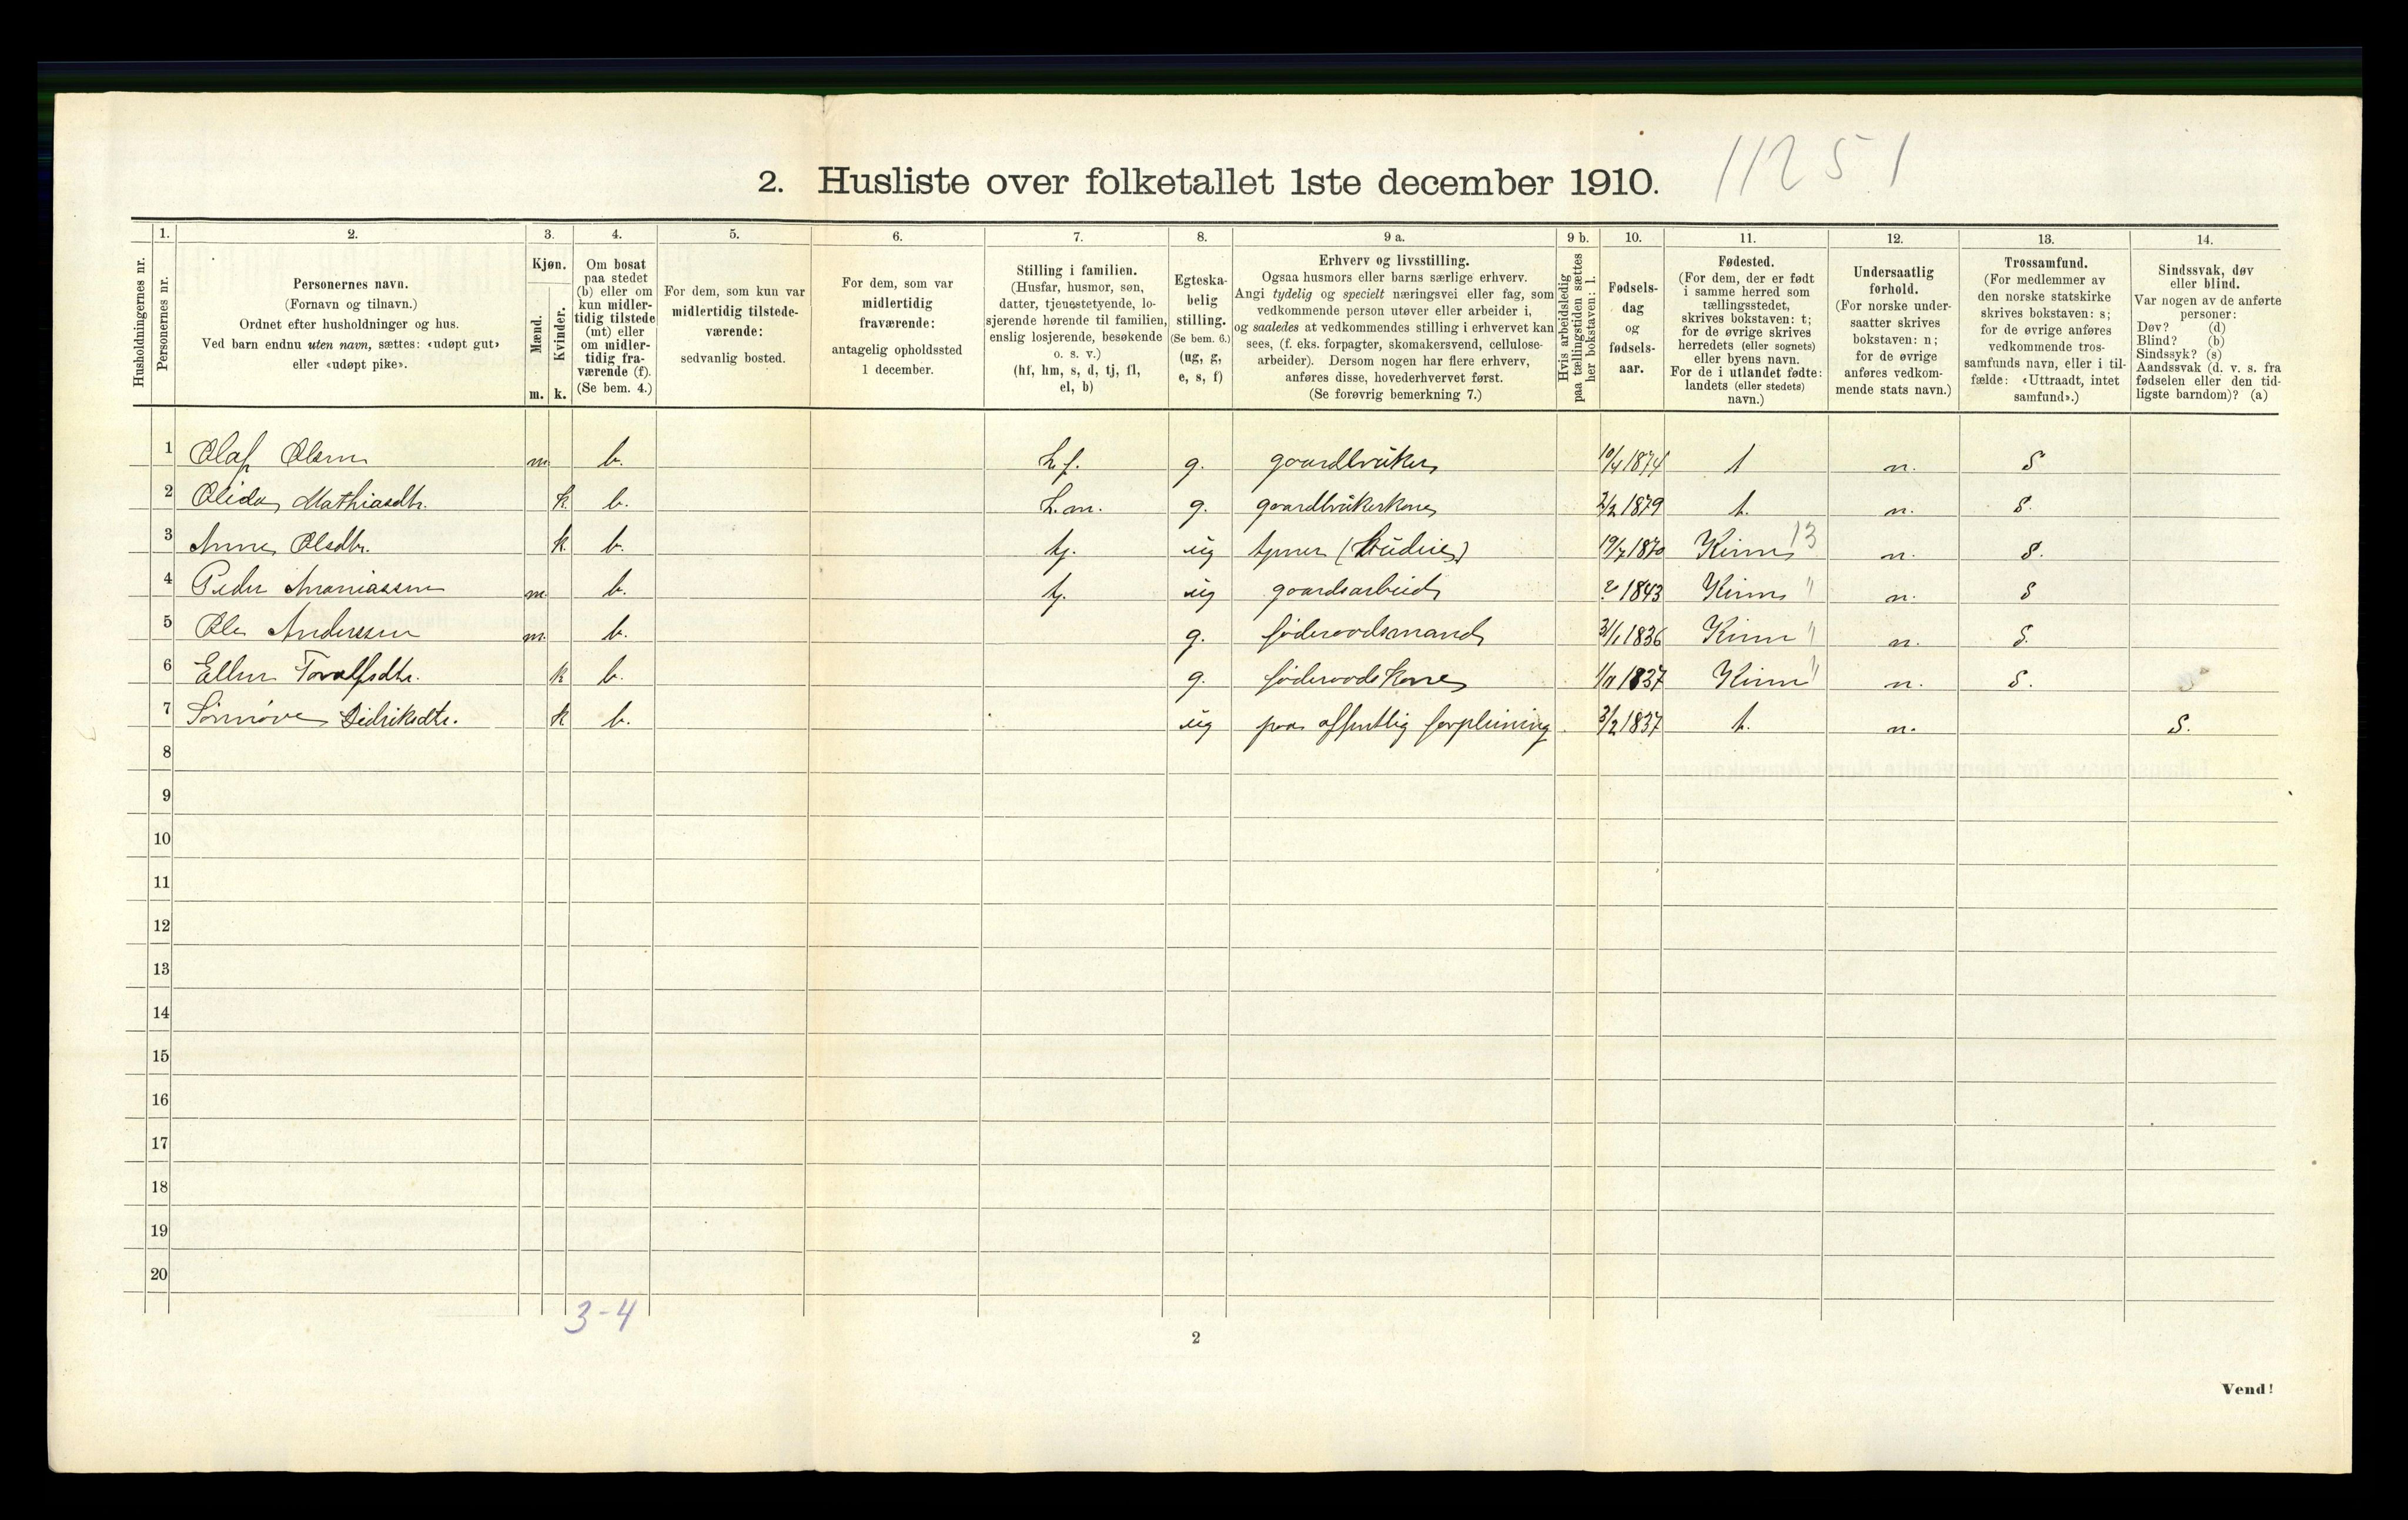 2. Husliste over folketallet 1ste december 1910. 11251
Husholdningernes nr.
1. Personernes nr.
2. Personernes navn.
(Fornavn og tilnavn.)
Ordnet efter husholdninger og hus.
Ved barn endnu uten navn, sættes: «udøpt gut»
eller «udøpt pike».
3. Kjøn.
Mænd. m.
Kvinder. k.
4. Om bosat
paa stedet
(b) eller om
kun midler-
tidig tilstede
(mt) eller
om midler-
tidig fra-
værende (f).
(Se bem. 4.)
5. For dem, som kun var
midlertidig tilstede-
værende:
sedvanlig bosted.
6. For dem, som var
midlertidig
fraværende:
antagelig opholdssted
1 december.
7. Stilling i familien.
(Husfar, husmor, søn,
datter, tjenestetyende, lo-
sjerende hørende til familien,
enslig losjerende, besøkende
o. s. v.)
(hf, hm, s, d, tj, fl,
el, b)
8. Egteska-
belig
stilling.
(Se bem. 6.)
(ug, g,
e, s, f)
9 a. Erhverv og livsstilling.
Ogsaa husmors eller barns særlige erhverv.
Angi tydelig og specielt næringsvei eller fag, som
vedkommende person utøver eller arbeider i,
og saaledes at vedkommendes stilling i erhvervet kan
sees, (f. eks. forpagter, skomakersvend, cellulose-
arbeider). Dersom nogen har flere erhverv,
anføres disse, hovederhvervet først.
(Se forøvrig bemerkning 7.)
9 b. Hvis arbeidsledig
paa tællingstiden sættes
her bokstaven: l.
10. Fødsels-
dag
og
fødsels-
aar.
11. Fødested.
(For dem, der er født
i samme herred som
tællingsstedet,
skrives bokstaven: t;
for de øvrige skrives
herredets (eller sognets)
eller byens navn.
For de i utlandet fødte:
landets (eller stedets)
navn.)
12. Undersaatlig
forhold.
(For norske under-
saatter skrives
bokstaven: n;
for de øvrige
anføres vedkom-
mende stats navn.)
13. Trossamfund.
(For medlemmer av
den norske statskirke
skrives bokstaven: s;
for de øvrige anføres
vedkommende tros-
samfunds navn, eller i til-
fælde: «Uttraadt, intet
samfund».)
14. Sindssvak, døv
eller blind.
Var nogen av de anførte
personer:
Døv? (d)
Blind? (b)
Sindssyk? (s)
Aandssvak (d. v. s. fra
fødselen eller den tid-
ligste barndom)? (a)
1 Olaf Olsen m. b. h.f. g. gaardbruker 10/4 1874 t n. S
2 Olida Mathiasdtr. k. b. h.m. g. gaardbrukerkone 2/2 1879 t. n. S.
3 Anne Olsdtr. k. b. tj. ug tjener (Budeie) 19/7 1870 Kinn 13 n. S.
4 Peder Ananiassen m. b. tj. ug gaardsarbeid ? 1843 Kinn " n. S
5 Ole Anderssen m. b. g. føderaadsmand 31/1 1836 Kinn " n. S.
6 Ellen Toralfsdtr. k b. g. føderaadskone 1/11 1837 Kinn " n. S.
7 Sønnøve Didriksdtr. k b. ug paa offentlig forpleining 3/2 1837 t. n. S.
8
9
10
11
12
13
14
15
16
17
18
19
20
3-4
2
Vend!